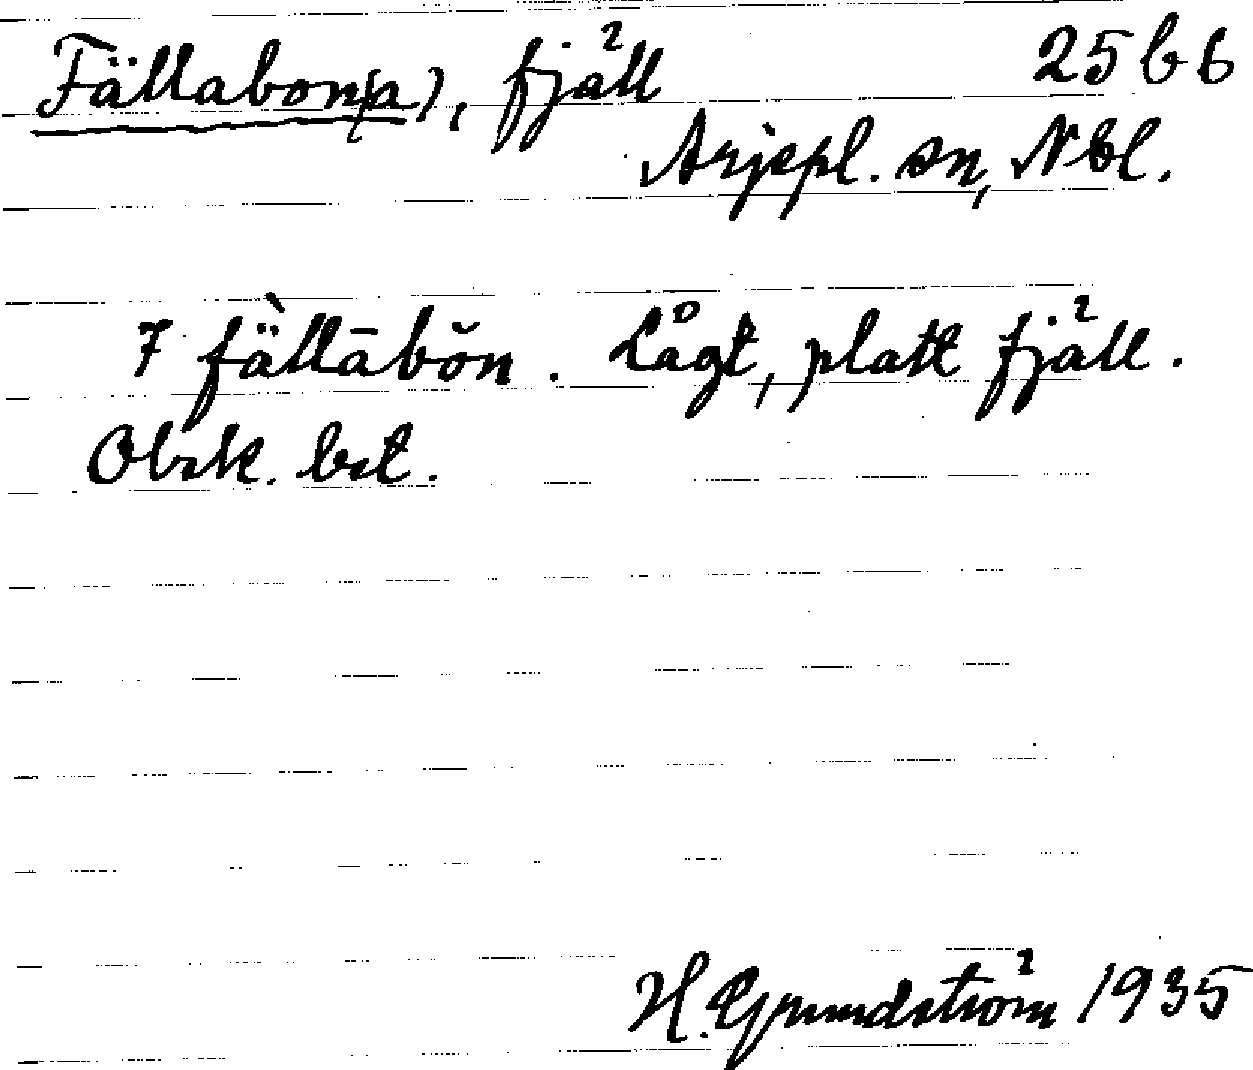 Fällabon(a), fjäll 25 b 6
Arjepl. sn, Nbl.
7 fä̀llābŏn. Lågt, platt fjäll.
Obsk. bet.
H. Grundström 1935